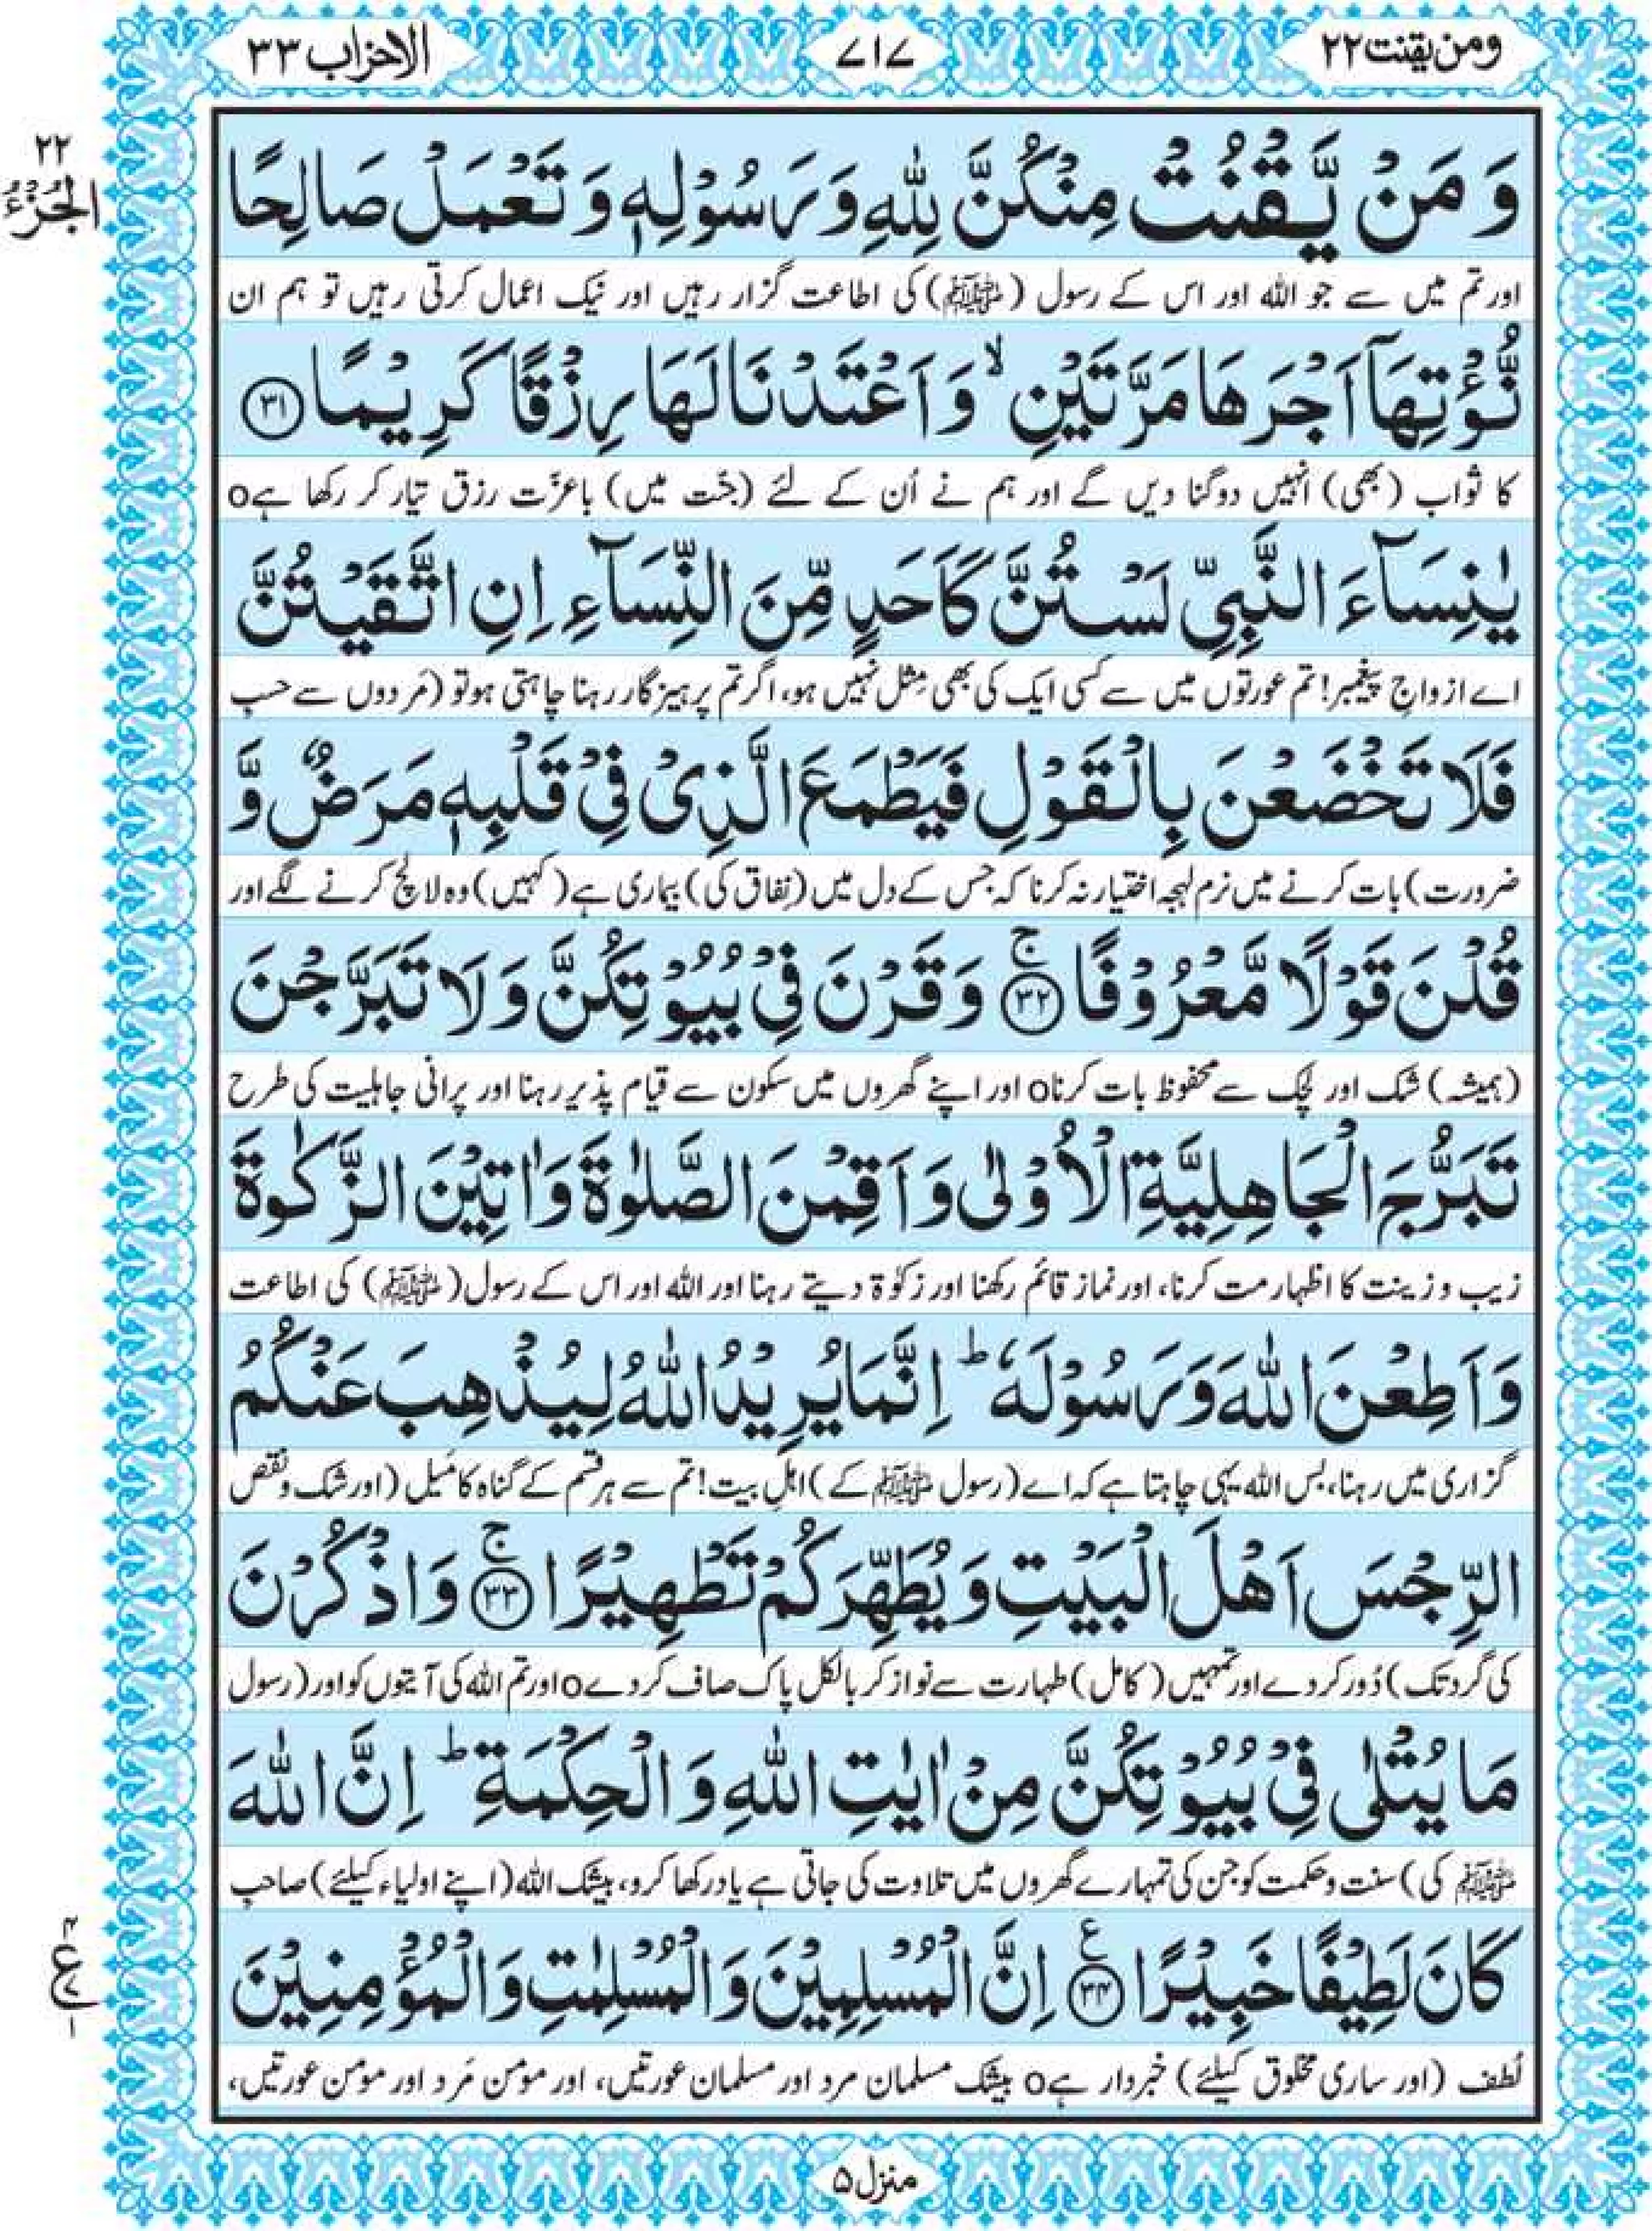 ومن یقنت ۲۲
۷۱۷
الاحزاب ۳۳
۲۲
الجُزْءُ
وَ مَنْ یَّقْنُتْ مِنْكُنَّ لِلّٰهِ وَ رَسُوْلِهٖ وَ تَعْمَلْ صَالِحًا
اور تم میں سے جو اللہ اور اس کے رسول (ﷺ) کی اطاعت گزار رہیں اور نیک اعمال کرتی رہیں تو ہم ان
نُّؤْتِهَاۤ اَجْرَهَا مَرَّتَیْنِ ۙ وَ اَعْتَدْنَا لَهَا رِزْقًا كَرِیْمًا ﴿۳۱﴾
کا ثواب (بھی) انہیں دوگنا دیں گے اور ہم نے اُن کے لئے (جنّت میں) باعزّت رزق تیار کر رکھا ہےo
یٰنِسَآءَ النَّبِیِّ لَسْتُنَّ كَاَحَدٍ مِّنَ النِّسَآءِ اِنِ اتَّقَیْتُنَّ
اے ازواجِ پیغمبر! تم عورتوں میں سے کسی ایک کی بھی مِثل نہیں ہو، اگر تم پرہیزگار رہنا چاہتی ہو تو (مَردوں سے حسبِ
فَلَا تَخْضَعْنَ بِالْقَوْلِ فَیَطْمَعَ الَّذِیْ فِیْ قَلْبِهٖ مَرَضٌ وَّ
ضرورت) بات کرنے میں نرم لہجہ اختیار نہ کرنا کہ جس کے دل میں (نِفاق کی) بیماری ہے (کہیں) وہ لالچ کرنے لگے اور
قُلْنَ قَوْلًا مَّعْرُوْفًا ﴿۳۲﴾ ۚ وَ قَرْنَ فِیْ بُیُوْتِكُنَّ وَ لَا تَبَرَّجْنَ
(ہمیشہ) شک اور لچک سے محفوظ بات کرناo اور اپنے گھروں میں سکون سے قیام پذیر رہنا اور پرانی جاہلیت کی طرح
تَبَرُّجَ الْجَاهِلِیَّةِ الْاُوْلٰی وَ اَقِمْنَ الصَّلٰوةَ وَ اٰتِیْنَ الزَّكٰوةَ
زیب و زینت کا اظہار مت کرنا، اور نماز قائم رکھنا اور زکوٰۃ دیتے رہنا اور اللہ اور اس کے رسول (ﷺ) کی اطاعت
وَ اَطِعْنَ اللّٰهَ وَ رَسُوْلَهٗ ؕ اِنَّمَا یُرِیْدُ اللّٰهُ لِیُذْهِبَ عَنْكُمُ
گزاری میں رہنا، بس اللہ یہی چاہتا ہے کہ اے (رسول ﷺ کے) اہلِ بیت! تم سے ہر قسم کے گناہ کا مَیل (اور شک و نقص
الرِّجْسَ اَهْلَ الْبَیْتِ وَ یُطَهِّرَكُمْ تَطْهِیْرًا ﴿۳۳﴾ ۚ وَ اذْكُرْنَ
کی گرد تک) دُور کر دے اور تمہیں (کامل) طہارت سے نواز کر بالکل پاک صاف کر دےo اور تم اللہ کی آیتوں کو اور (رسول
مَا یُتْلٰی فِیْ بُیُوْتِكُنَّ مِنْ اٰیٰتِ اللّٰهِ وَ الْحِكْمَةِ ؕ اِنَّ اللّٰهَ
ﷺ کی) سنت و حکمت کو جن کی تمہارے گھروں میں تلاوت کی جاتی ہے یاد رکھا کرو، بیشک اللہ (اپنے اولیاء کیلئے) صاحبِ
كَانَ لَطِیْفًا خَبِیْرًا ﴿۳۴﴾ ع اِنَّ الْمُسْلِمِیْنَ وَ الْمُسْلِمٰتِ وَ الْمُؤْمِنِیْنَ
لُطف (اور ساری مخلوق کیلئے) خبردار ہےo بیشک مسلمان مرد اور مسلمان عورتیں، اور مومن مَرد اور مومن عورتیں،
۴
ع
۱
منزل ۵